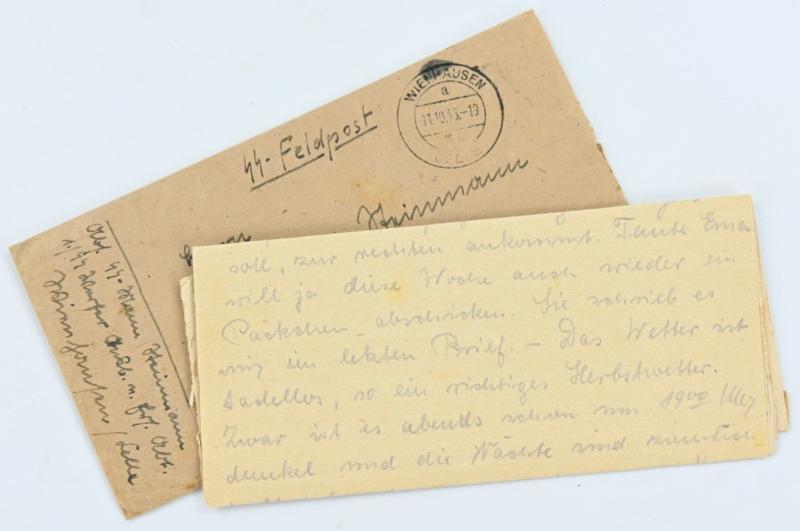 WIENHAUSEN
a
11.10.43.-19
SS-Feldpost
Steinmann
Abs. SS-Mann Steinmann
Wienhausen / Celle
soll, zur rechten ankommt. Tante Erna
will ja diese Woche auch wieder ein
Päckchen abschicken. Sie schrieb es
mir im letzten Brief. – Das Wetter ist
tadellos, so ein richtiges Herbstwetter.
Zwar ist es abends schon um 19⁰⁰ Uhr
dunkel und die Nächte sind ziemlich